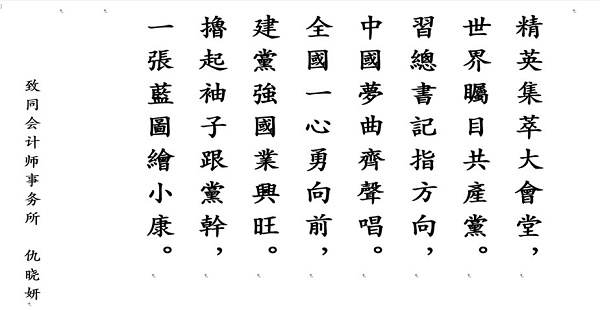 精英集萃大會堂，
世界矚目共產黨。
習總書記指方向，
中國夢曲齊聲唱。
全國一心勇向前，
建黨強國業興旺。
擼起袖子跟黨幹，
一張藍圖繪小康。
致同会计师事务所 仇晓妍